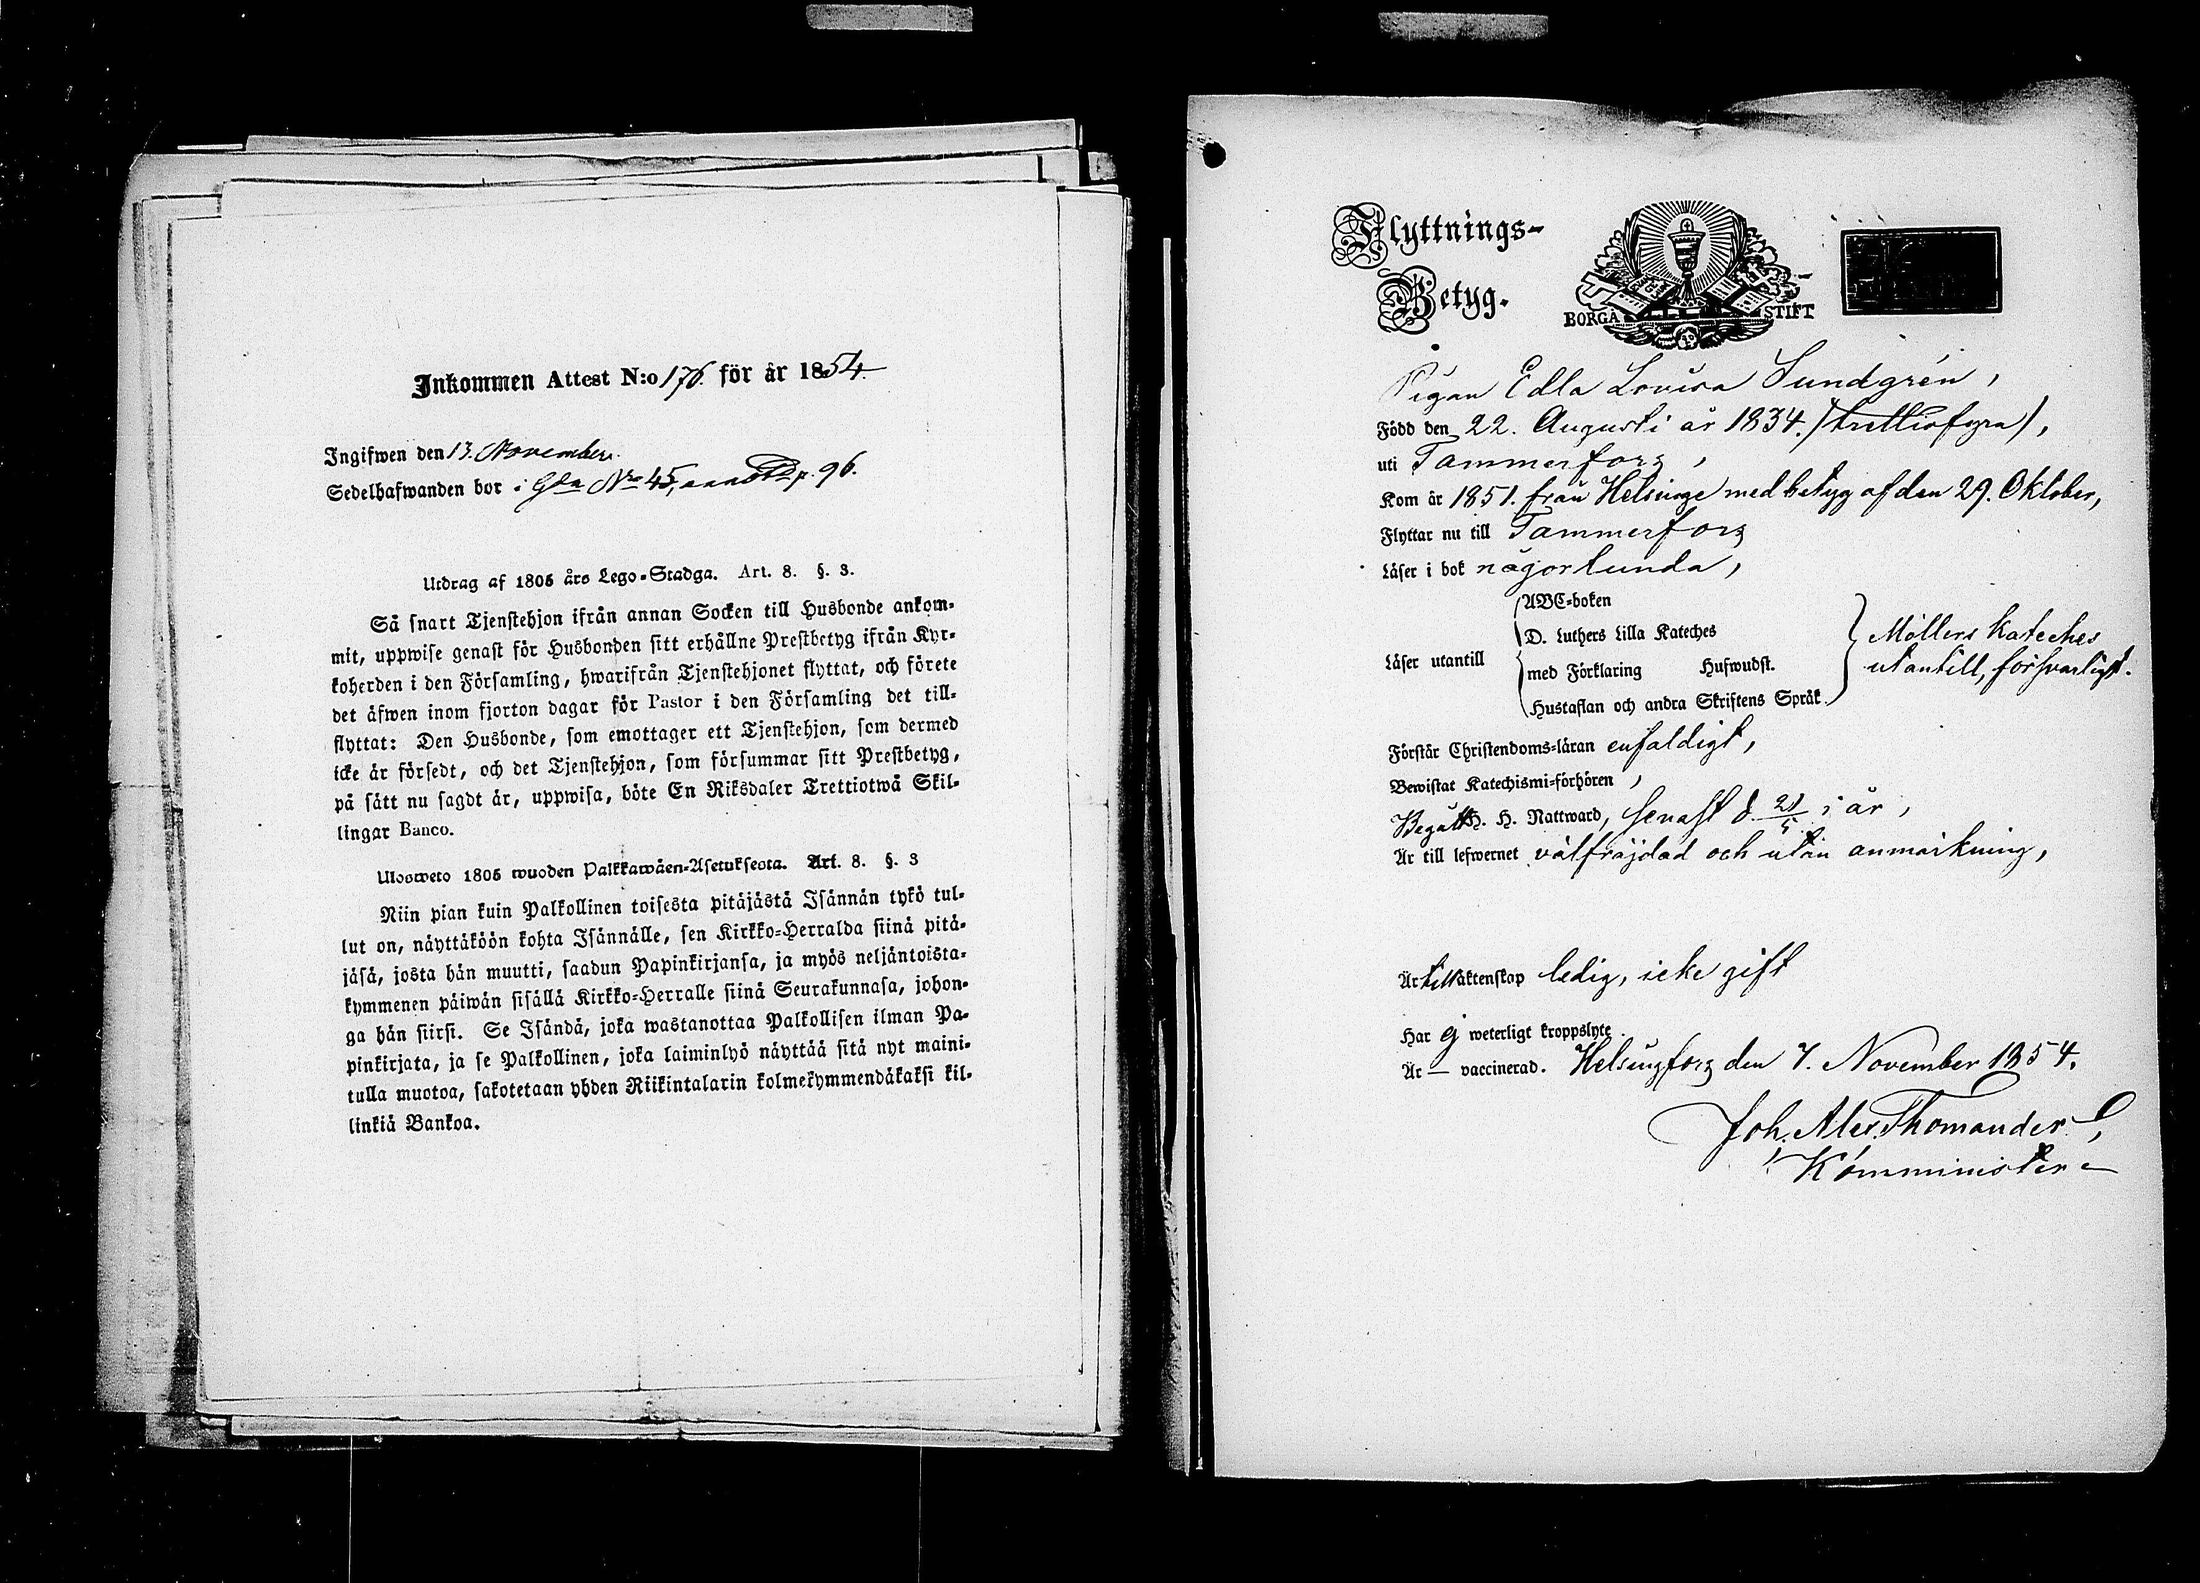 Inkommen Attest N:o 176. för år 1854.
Ingifwen den 13. November.
Sedelhafwanden bor i Gdn No 45, p. 96.
Utdrag af 1805 års Lego-Stadga. Art. 8. §. 3.
Så snart Tjenstehjon ifrån annan Socken till Husbonde ankom-
mit, uppwise genast för Husbonden sitt erhållne Prestbetyg ifrån Kyr-
koherden i den Församling, hwarifrån Tjenstehjonet flyttat, och förete
det äfwen inom fjorton dagar för Pastor i den Församling det till-
flyttat: Den Husbonde, som emottager ett Tjenstehjon, som dermed
icke är försedt, och det Tjenstehjon, som försummar sitt Prestbetyg,
på sätt nu sagdt är, uppwisa, böte En Riksdaler Trettiotwå Skil-
lingar Banco.
Ulosweto 1805 wuoden Palkkawäen-Asetuksesta. Art. 8. §. 3
Niin pian kuin Palkollinen toisesta pitäjästä Isännän tykö tul-
lut on, näyttäköön kohta Isännälle, sen Kirkko-Herralda siinä pitä-
jäsä, josta hän muutti, saadun Papinkirjansa, ja myös neljäntoista-
kymmenen päiwän sisällä Kirkko-Herralle siinä Seurakunnasa, johon-
ga hän siirsi. Se Isändä, joka wastanottaa Palkollisen ilman Pa-
pinkirjata, ja se Palkollinen, joka laiminlyö näyttää sitä nyt maini-
tulla muotoa, sakotetaan yhden Riikintalarin kolmekymmendäkaksi kil-
linkiä Bankoa.
Flyttnings-
Betyg.
BORGÅ STIFT
Pigan Edla Lovisa Sundgrén,
Född den 22. Augusti år 1834. /trettiofyra/,
uti Tammerfors,
Kom år 1851. från Helsinge med betyg af den 29. Oktober,
Flyttar nu till Tammerfors
Läser i bok någorlunda,
Läser utantill
ABC-boken
D. Luthers Lilla Kateches
med Förklaring Hufwudst.
Hustaflan och andra Skriftens Språk.
Möllers Kateches
utantill, försvarligt.
Förstår Christendoms-läran enfaldigt,
Bewistat Katechismi-förhören,
Begått H. H. Nattward, senast d. 21/5 i år,
Är till lefwernet välfräjdad och utan anmärkning,
Är till äktenskap ledig, icke gift
Har ej weterligt kroppslyte.
Är — vaccinerad. Helsingfors den 7. November 1854.
Joh. Alex. Thomander,
Komminister